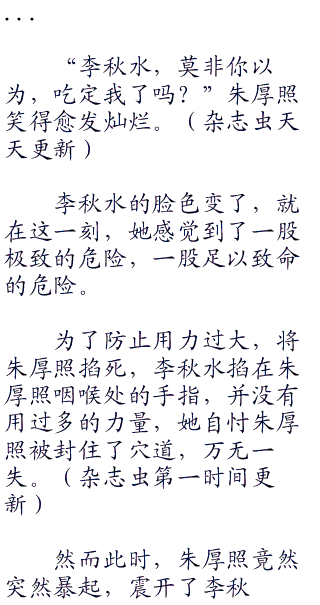 ...
“李秋水，莫非你以
为，吃定我了吗？”朱厚照
笑得愈发灿烂。（杂志虫天
天更新）
李秋水的脸色变了，就
在这一刻，她感觉到了一股
极致的危险，一股足以致命
的危险。
为了防止用力过大，将
朱厚照掐死，李秋水掐在朱
厚照咽喉处的手指，并没有
用过多的力量，她自忖朱厚
照被封住了穴道，万无一
失。（杂志虫第一时间更
新）
然而此时，朱厚照竟然
突然暴起，震开了李秋